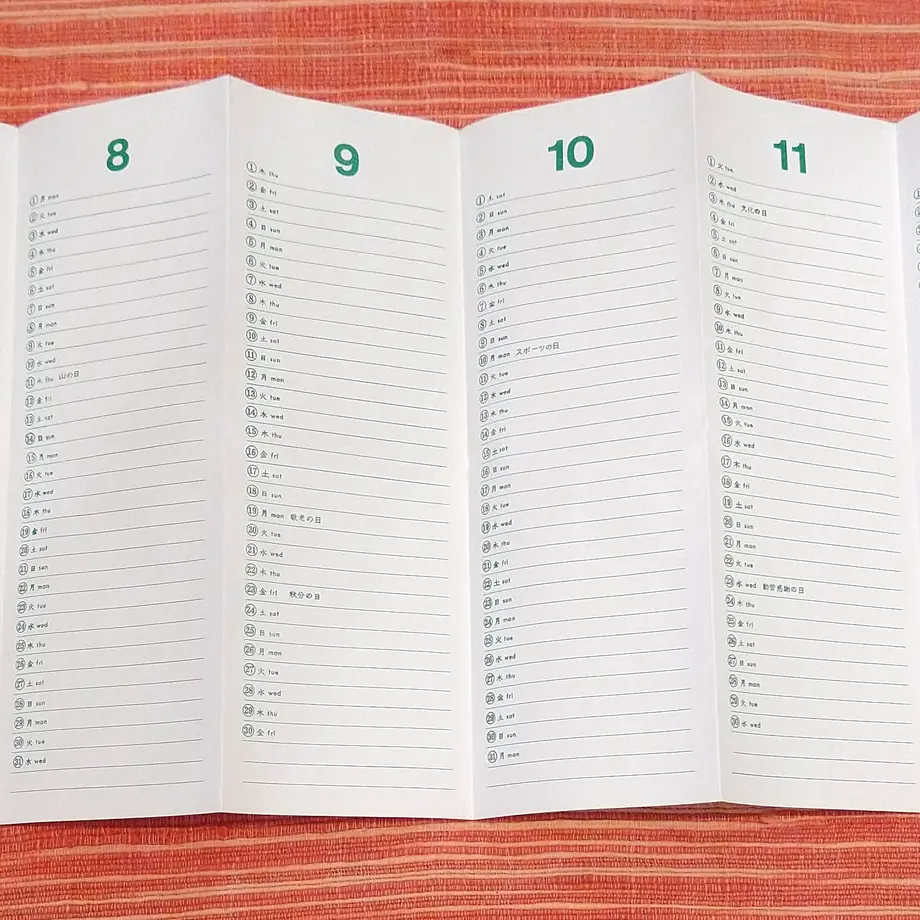 8
① 月 mon
② 火 tue
③ 水 wed
④ 木 thu
⑤ 金 fri
⑥ 土 sat
⑦ 日 sun
⑧ 月 mon
⑨ 火 tue
⑩ 水 wed
⑪ 木 thu 山の日
⑫ 金 fri
⑬ 土 sat
⑭ 日 sun
⑮ 月 mon
⑯ 火 tue
⑰ 水 wed
⑱ 木 thu
⑲ 金 fri
⑳ 土 sat
㉑ 日 sun
㉒ 月 mon
㉓ 火 tue
㉔ 水 wed
㉕ 木 thu
㉖ 金 fri
㉗ 土 sat
㉘ 日 sun
㉙ 月 mon
㉚ 火 tue
㉛ 水 wed
9
① 木 thu
② 金 fri
③ 土 sat
④ 日 sun
⑤ 月 mon
⑥ 火 tue
⑦ 水 wed
⑧ 木 thu
⑨ 金 fri
⑩ 土 sat
⑪ 日 sun
⑫ 月 mon
⑬ 火 tue
⑭ 水 wed
⑮ 木 thu
⑯ 金 fri
⑰ 土 sat
⑱ 日 sun
⑲ 月 mon 敬老の日
⑳ 火 tue
㉑ 水 wed
㉒ 木 thu
㉓ 金 fri 秋分の日
㉔ 土 sat
㉕ 日 sun
㉖ 月 mon
㉗ 火 tue
㉘ 水 wed
㉙ 木 thu
㉚ 金 fri
10
① 土 sat
② 日 sun
③ 月 mon
④ 火 tue
⑤ 水 wed
⑥ 木 thu
⑦ 金 fri
⑧ 土 sat
⑨ 日 sun
⑩ 月 mon スポーツの日
⑪ 火 tue
⑫ 水 wed
⑬ 木 thu
⑭ 金 fri
⑮ 土 sat
⑯ 日 sun
⑰ 月 mon
⑱ 火 tue
⑲ 水 wed
⑳ 木 thu
㉑ 金 fri
㉒ 土 sat
㉓ 日 sun
㉔ 月 mon
㉕ 火 tue
㉖ 水 wed
㉗ 木 thu
㉘ 金 fri
㉙ 土 sat
㉚ 日 sun
㉛ 月 mon
11
① 火 tue
② 水 wed
③ 木 thu 文化の日
④ 金 fri
⑤ 土 sat
⑥ 日 sun
⑦ 月 mon
⑧ 火 tue
⑨ 水 wed
⑩ 木 thu
⑪ 金 fri
⑫ 土 sat
⑬ 日 sun
⑭ 月 mon
⑮ 火 tue
⑯ 水 wed
⑰ 木 thu
⑱ 金 fri
⑲ 土 sat
⑳ 日 sun
㉑ 月 mon
㉒ 火 tue
㉓ 水 wed 勤労感謝の日
㉔ 木 thu
㉕ 金 fri
㉖ 土 sat
㉗ 日 sun
㉘ 月 mon
㉙ 火 tue
㉚ 水 wed